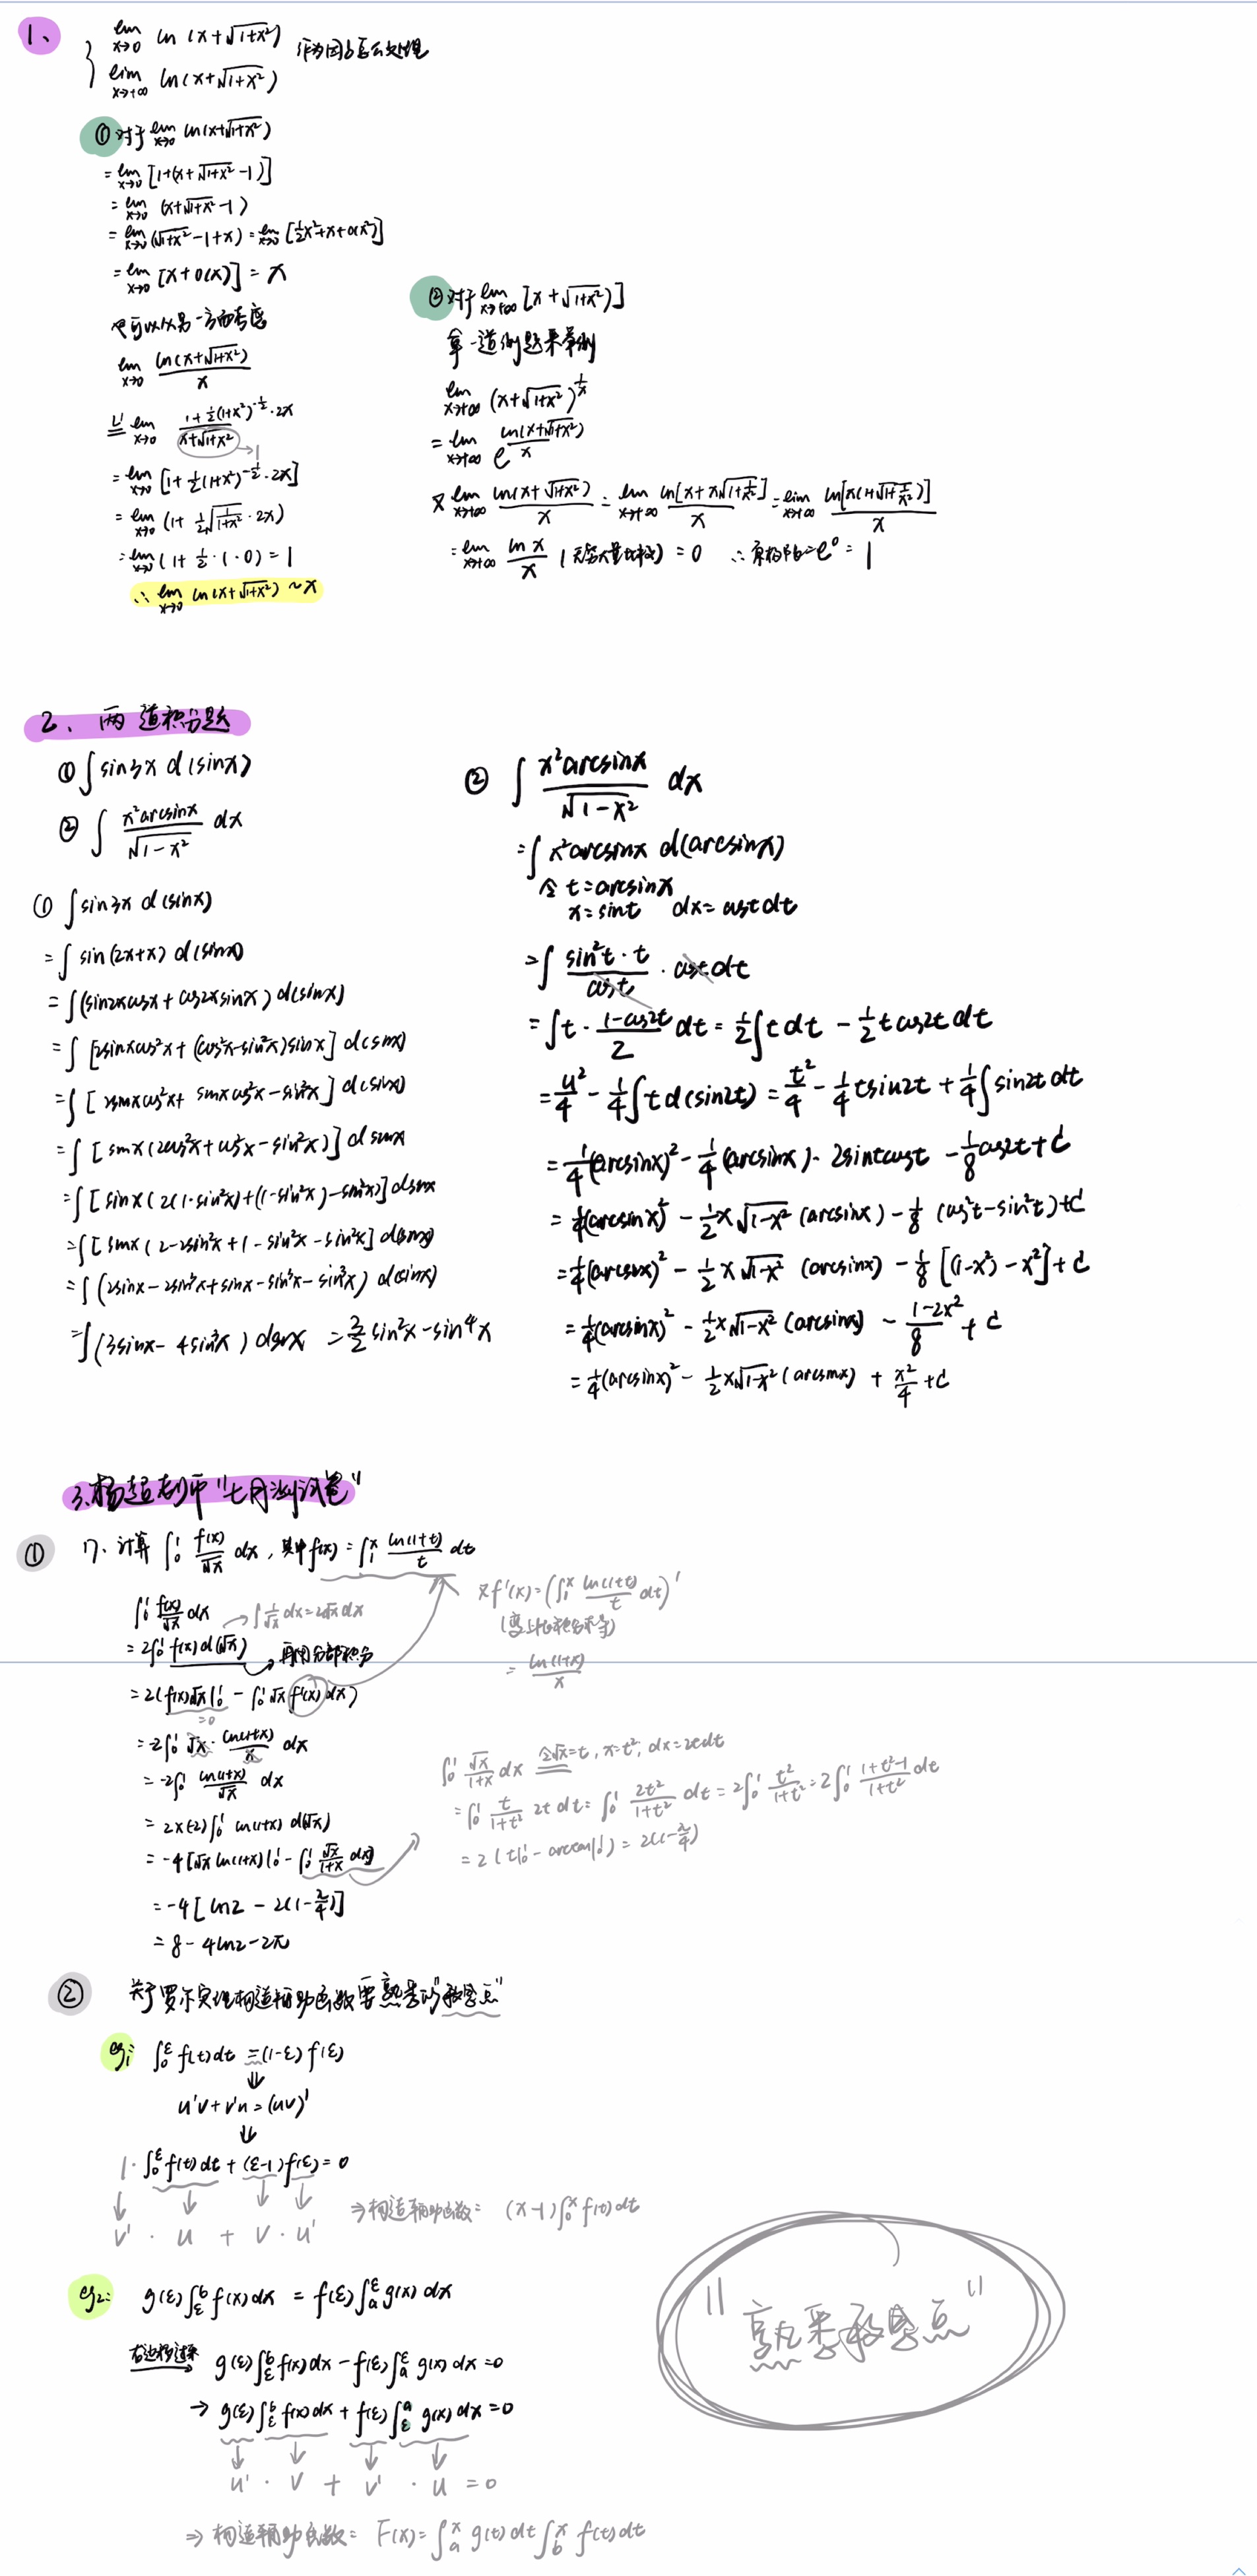 1、
lim x→0 ln(x+√(1+x²)) 作为因子怎么处理
lim x→+∞ ln(x+√(1+x²))
① 对于 lim x→0 ln(x+√(1+x²))
= lim x→0 [1+(x+√(1+x²)-1)]
= lim x→0 (x+√(1+x²)-1)
= lim x→0 (√(1+x²)-1+x) = lim x→0 [½x²+x+o(x²)]
= lim x→0 [x+o(x)] = x
也可以从另一方面考虑
lim x→0 ln(x+√(1+x²))/x
L' = lim x→0 (1+½(1+x²)^(-½)·2x)/(x+√(1+x²)) →1
= lim x→0 [1+½(1+x²)^(-½)·2x]
= lim x→0 (1+½√(1/(1+x²))·2x)
= lim x→0 (1+½·1·0) = 1
∴ lim x→0 ln(x+√(1+x²)) ~ x
② 对于 lim x→+∞ [x+√(1+x²)]
拿一道例题来举例
lim x→+∞ (x+√(1+x²))^(1/x)
= lim x→+∞ e^(ln(x+√(1+x²))/x)
又 lim x→+∞ ln(x+√(1+x²))/x = lim x→+∞ ln[x+x√(1+1/x²)]/x = lim x→+∞ ln[x(1+√(1+1/x²))]/x
= lim x→+∞ ln x/x (无穷大量比较) = 0 ∴ 原极限=e⁰=1
2、两道积分题
① ∫sin3x d(sinx)
② ∫ x²arcsinx/√(1-x²) dx
① ∫sin3x d(sinx)
= ∫sin(2x+x) d(sinx)
= ∫(sin2xcosx+cos2xsinx) d(sinx)
= ∫[2sinxcos²x+(cos²x-sin²x)sinx] d(sinx)
= ∫[2sinxcos²x+sinxcos²x-sin³x] d(sinx)
= ∫[sinx(2cos²x+cos²x-sin²x)] dsinx
= ∫[sinx(2(1-sin²x)+(1-sin²x)-sin²x)] dsinx
= ∫[sinx(2-2sin²x+1-sin²x-sin²x] d(sinx)
= ∫(2sinx-2sin³x+sinx-sin³x-sin³x) d(sinx)
= ∫(3sinx-4sin³x) dsinx = 3/2 sin²x-sin⁴x
② ∫ x²arcsinx/√(1-x²) dx
= ∫x²arcsinx d(arcsinx)
令 t=arcsinx
x=sint dx=costdt
= ∫ sin²t·t/cost · costdt
= ∫t·(1-cos2t)/2 dt = ½∫t dt - ½tcos2t dt
= u²/4 - ¼∫t d(sin2t) = t²/4 - ¼tsin2t + ¼∫sin2t dt
= ¼(arcsinx)² - ¼(arcsinx)·2sintcost - ⅛cos2t+C
= ¼(arcsinx)² - ½x√(1-x²)(arcsinx) - ⅛(cos²t-sin²t)+C
= ¼(arcsinx)² - ½x√(1-x²)(arcsinx) - ⅛[(1-x²)-x²]+C
= ¼(arcsinx)² - ½x√(1-x²)(arcsinx) - (1-2x²)/8 + C
= ¼(arcsinx)² - ½x√(1-x²)(arcsinx) + x²/4 +C
3、杨超老师"七月测试卷"
① 17. 计算 ∫₀¹ f(x)/√x dx, 其中f(x)=∫₁ˣ ln(1+t)/t dt
∫₀¹ f(x)/√x dx → ∫1/√x dx=2√x dx
= 2∫₀¹ f(x)d(√x) → 再用分部积分
= 2(f(x)√x|₀¹ - ∫₀¹ √x f'(x)dx)
=0
= -2∫₀¹ √x · ln(1+x)/x dx
= -2∫₀¹ ln(1+x)/√x dx
= 2×(-2)∫₀¹ ln(1+x) d(√x)
= -4[√x ln(1+x)|₀¹ - ∫₀¹ √x/(1+x) dx]
= -4[ln2 - 2(1-π/4)]
= 8-4ln2-2π
又f'(x)=(∫₁ˣ ln(1+t)/t dt)'
(变上限积分求导)
= ln(1+x)/x
∫₀¹ √x/(1+x) dx 令√x=t, x=t², dx=2tdt
= ∫₀¹ t/(1+t²) 2t dt = ∫₀¹ 2t²/(1+t²) dt = 2∫₀¹ t²/(1+t²) = 2∫₀¹ (1+t²-1)/(1+t²) dt
= 2(t|₀¹ - arctan|₀¹) = 2(1-π/4)
② 关于罗尔定理构造辅助函数要熟悉的"敏感点"
eg1: ∫₀^ξ f(t)dt = (1-ξ)f(ξ)
⇓
u'v+v'u=(uv)'
⇓
1·∫₀^ξ f(t)dt + (ξ-1)f(ξ)=0
↓ ↓ ↓ ↓
v' · u + v · u'
⇒构造辅助函数: (x-1)∫₀ˣ f(t)dt
eg2: g(ξ)∫_ξ^b f(x)dx = f(ξ)∫_a^ξ g(x)dx
右边移过来 g(ξ)∫_ξ^b f(x)dx - f(ξ)∫_a^ξ g(x)dx=0
→ g(ξ)∫_ξ^b f(x)dx + f(ξ)∫_ξ^a g(x)dx=0
↓ ↓ ↓ ↓
u' · v + v' · u = 0
⇒ 构造辅助函数: F(x)=∫_a^x g(t)dt∫_b^x f(t)dt
"熟悉敏感点"